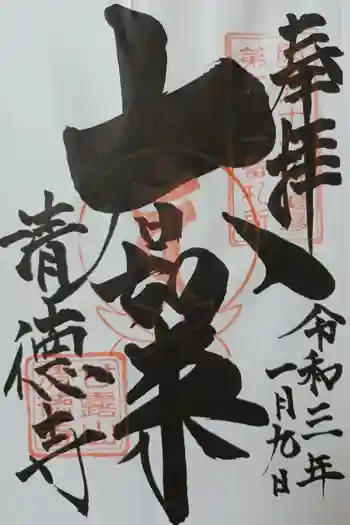 奉拝
大日如来
令和三年
一月九日
青徳寺